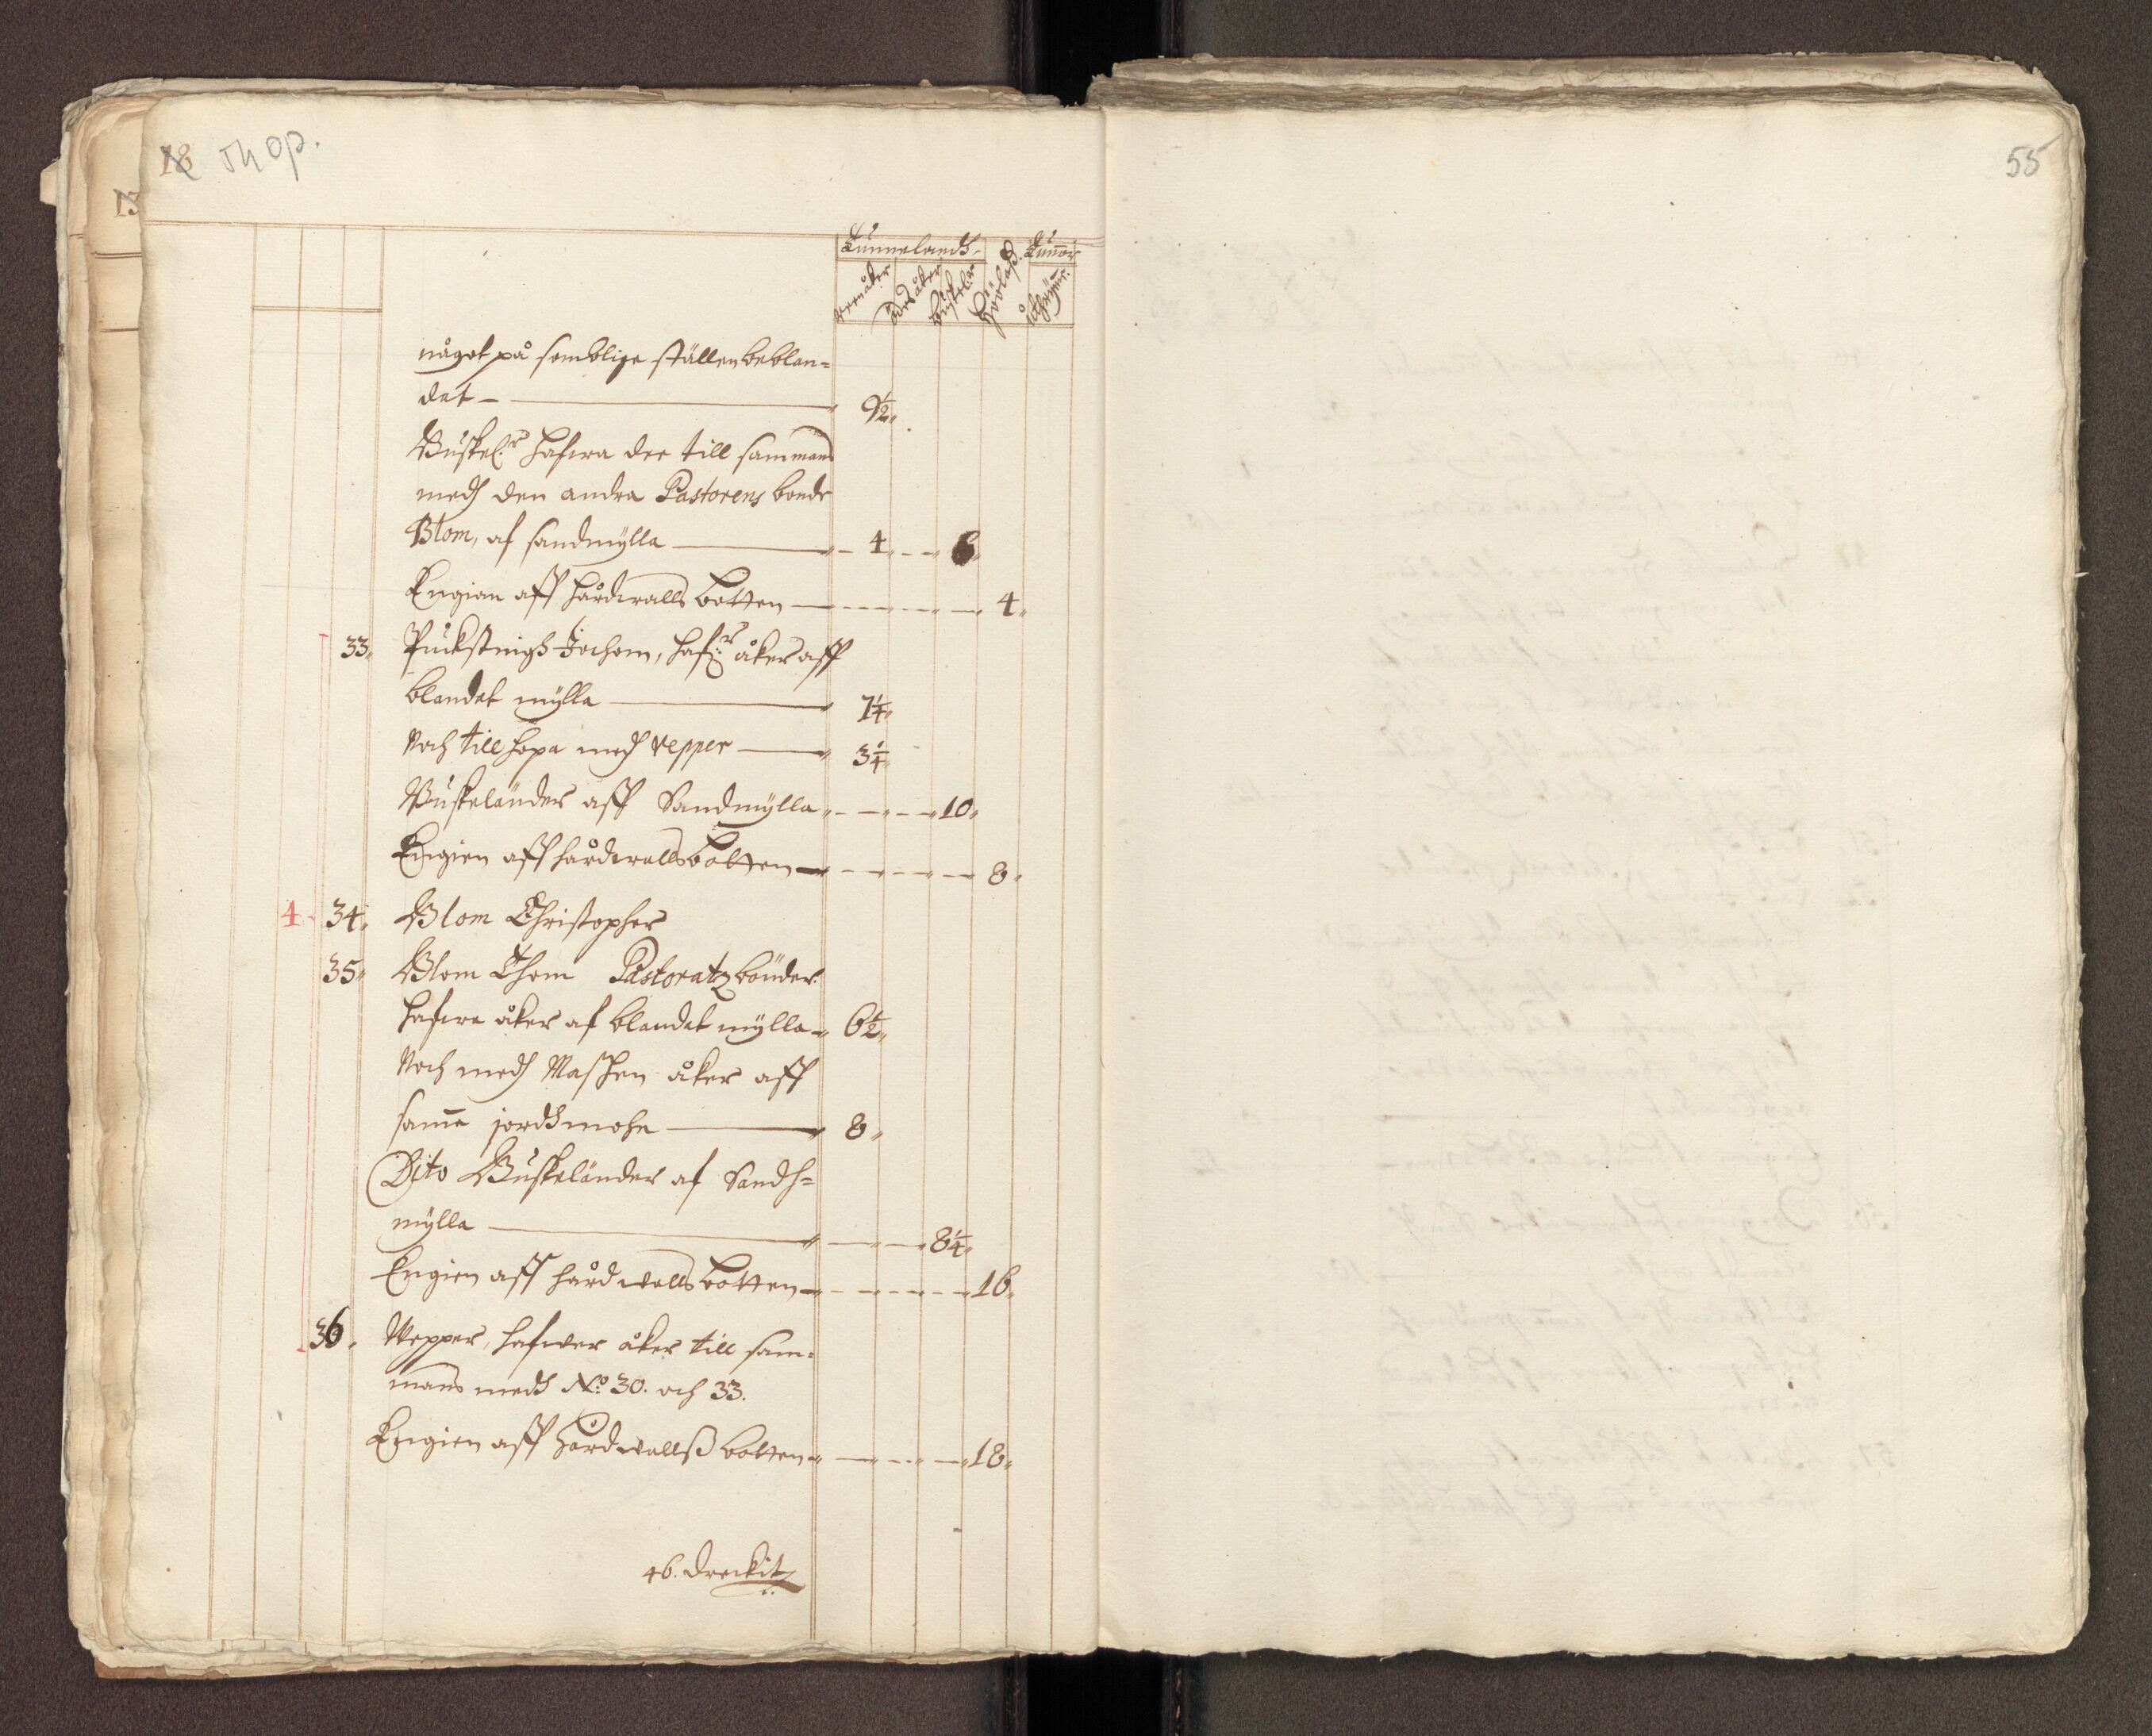 18 54 op.
13
55
Tunnelandh. Tunnor
åker åker Busklr Höölass
något på somblige ställen beblan=
det — 9½
Buskel:r hafwa dee till sammans
medh den andra Pastorens bonde
Blom, af sandmylla — 4 6
Engian aff hårdwalls botten — 4
33 Puckstnigh Jochom, haf:r åker aff
blandat mylla — 7¼
Noch till hopa medh Vepper — 3¼
Buskeländer aff Sandmylla — 10
Engien aff hårdwalls botten — 8
4 34 Blom Christopher
35 Blom Thom Pastoratz bönder
hafwa åker af blandat mylla 6½
Noch medh Maschen åker aff
samme jordhmohn — 8
Dito Buskeländer af Sandh=
mylla — 8¼
Engien aff hårdwalls botten — 16
36 Wepper, hafwer åker till sam=
mans medh No: 30. och 33.
Engien aff hårdwallss botten — 18
46. Dreckitz